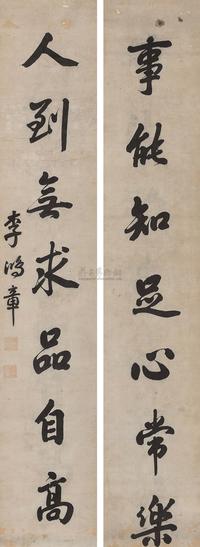 事能知足心常樂
人到無求品自高
李鴻章